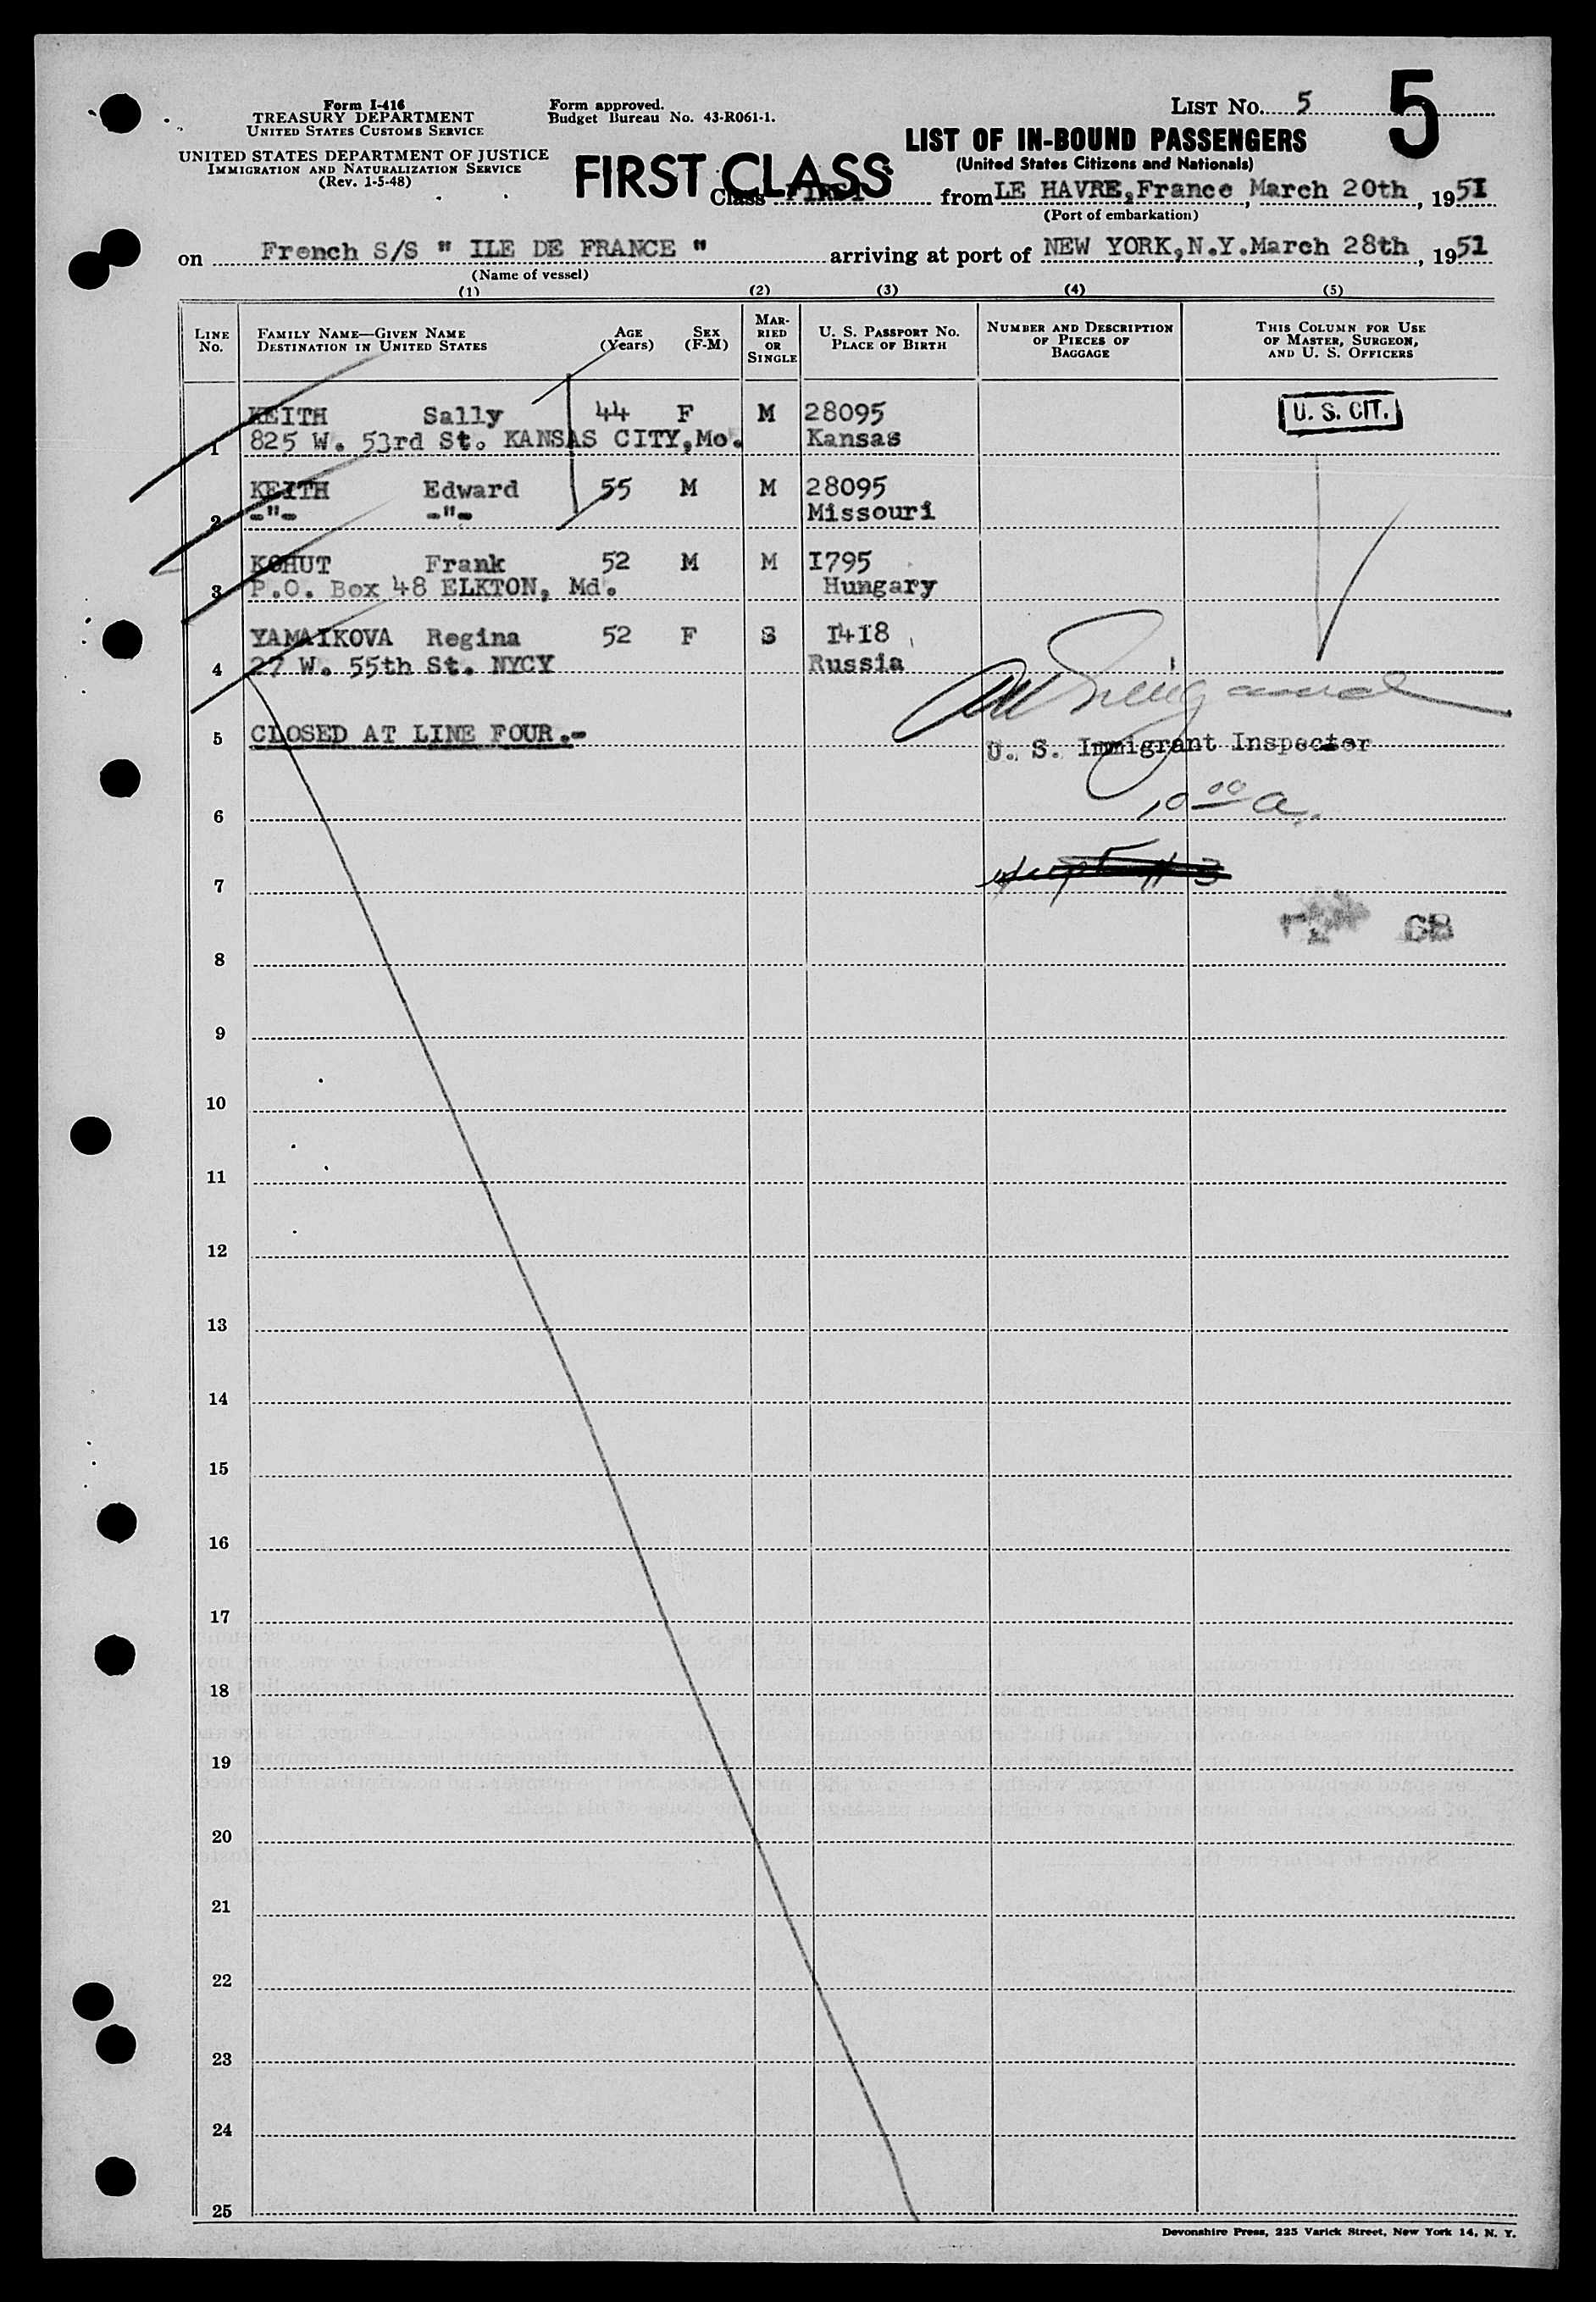 Form I-416
TREASURY DEPARTMENT
UNITED STATES CUSTOMS SERVICE
UNITED STATES DEPARTMENT OF JUSTICE
IMMIGRATION AND NATURALIZATION SERVICE
(Rev. 1-5-48)
Form approved.
Budget Bureau No. 43-R061-1.
LIST No. 5
5
LIST OF IN-BOUND PASSENGERS
(United States Citizens and Nationals)
FIRST CLASS
Class FIRST from LE HAVRE, France, March 20th, 1951
(Port of embarkation)
on French S/S " ILE DE FRANCE " arriving at port of NEW YORK, N.Y. March 28th, 1951
(Name of vessel)
(1) (2) (3) (4) (5)
LINE No. FAMILY NAME—GIVEN NAME DESTINATION IN UNITED STATES AGE (Years) SEX (F-M) MARRIED OR SINGLE U. S. PASSPORT No. PLACE OF BIRTH NUMBER AND DESCRIPTION OF PIECES OF BAGGAGE THIS COLUMN FOR USE OF MASTER, SURGEON, AND U. S. OFFICERS
KEITH Sally 44 F M 28095 U. S. CIT.
1 825 W. 53rd St. KANSAS CITY, Mo. Kansas
KEITH Edward 55 M M 28095
2 -"- -"- Missouri
KOHUT Frank 52 M M I795
3 P.O. Box 48 ELKTON, Md. Hungary
YAMAIKOVA Regina 52 F S I4I8
4 27 W. 55th St. NYCY Russia
5 CLOSED AT LINE FOUR.-
U. S. Immigrant Inspector
6 10 00 a.
7
8 GB
9
10
11
12
13
14
15
16
17
18
19
20
21
22
23
24
25
Devonshire Press, 225 Varick Street, New York 14, N. Y.